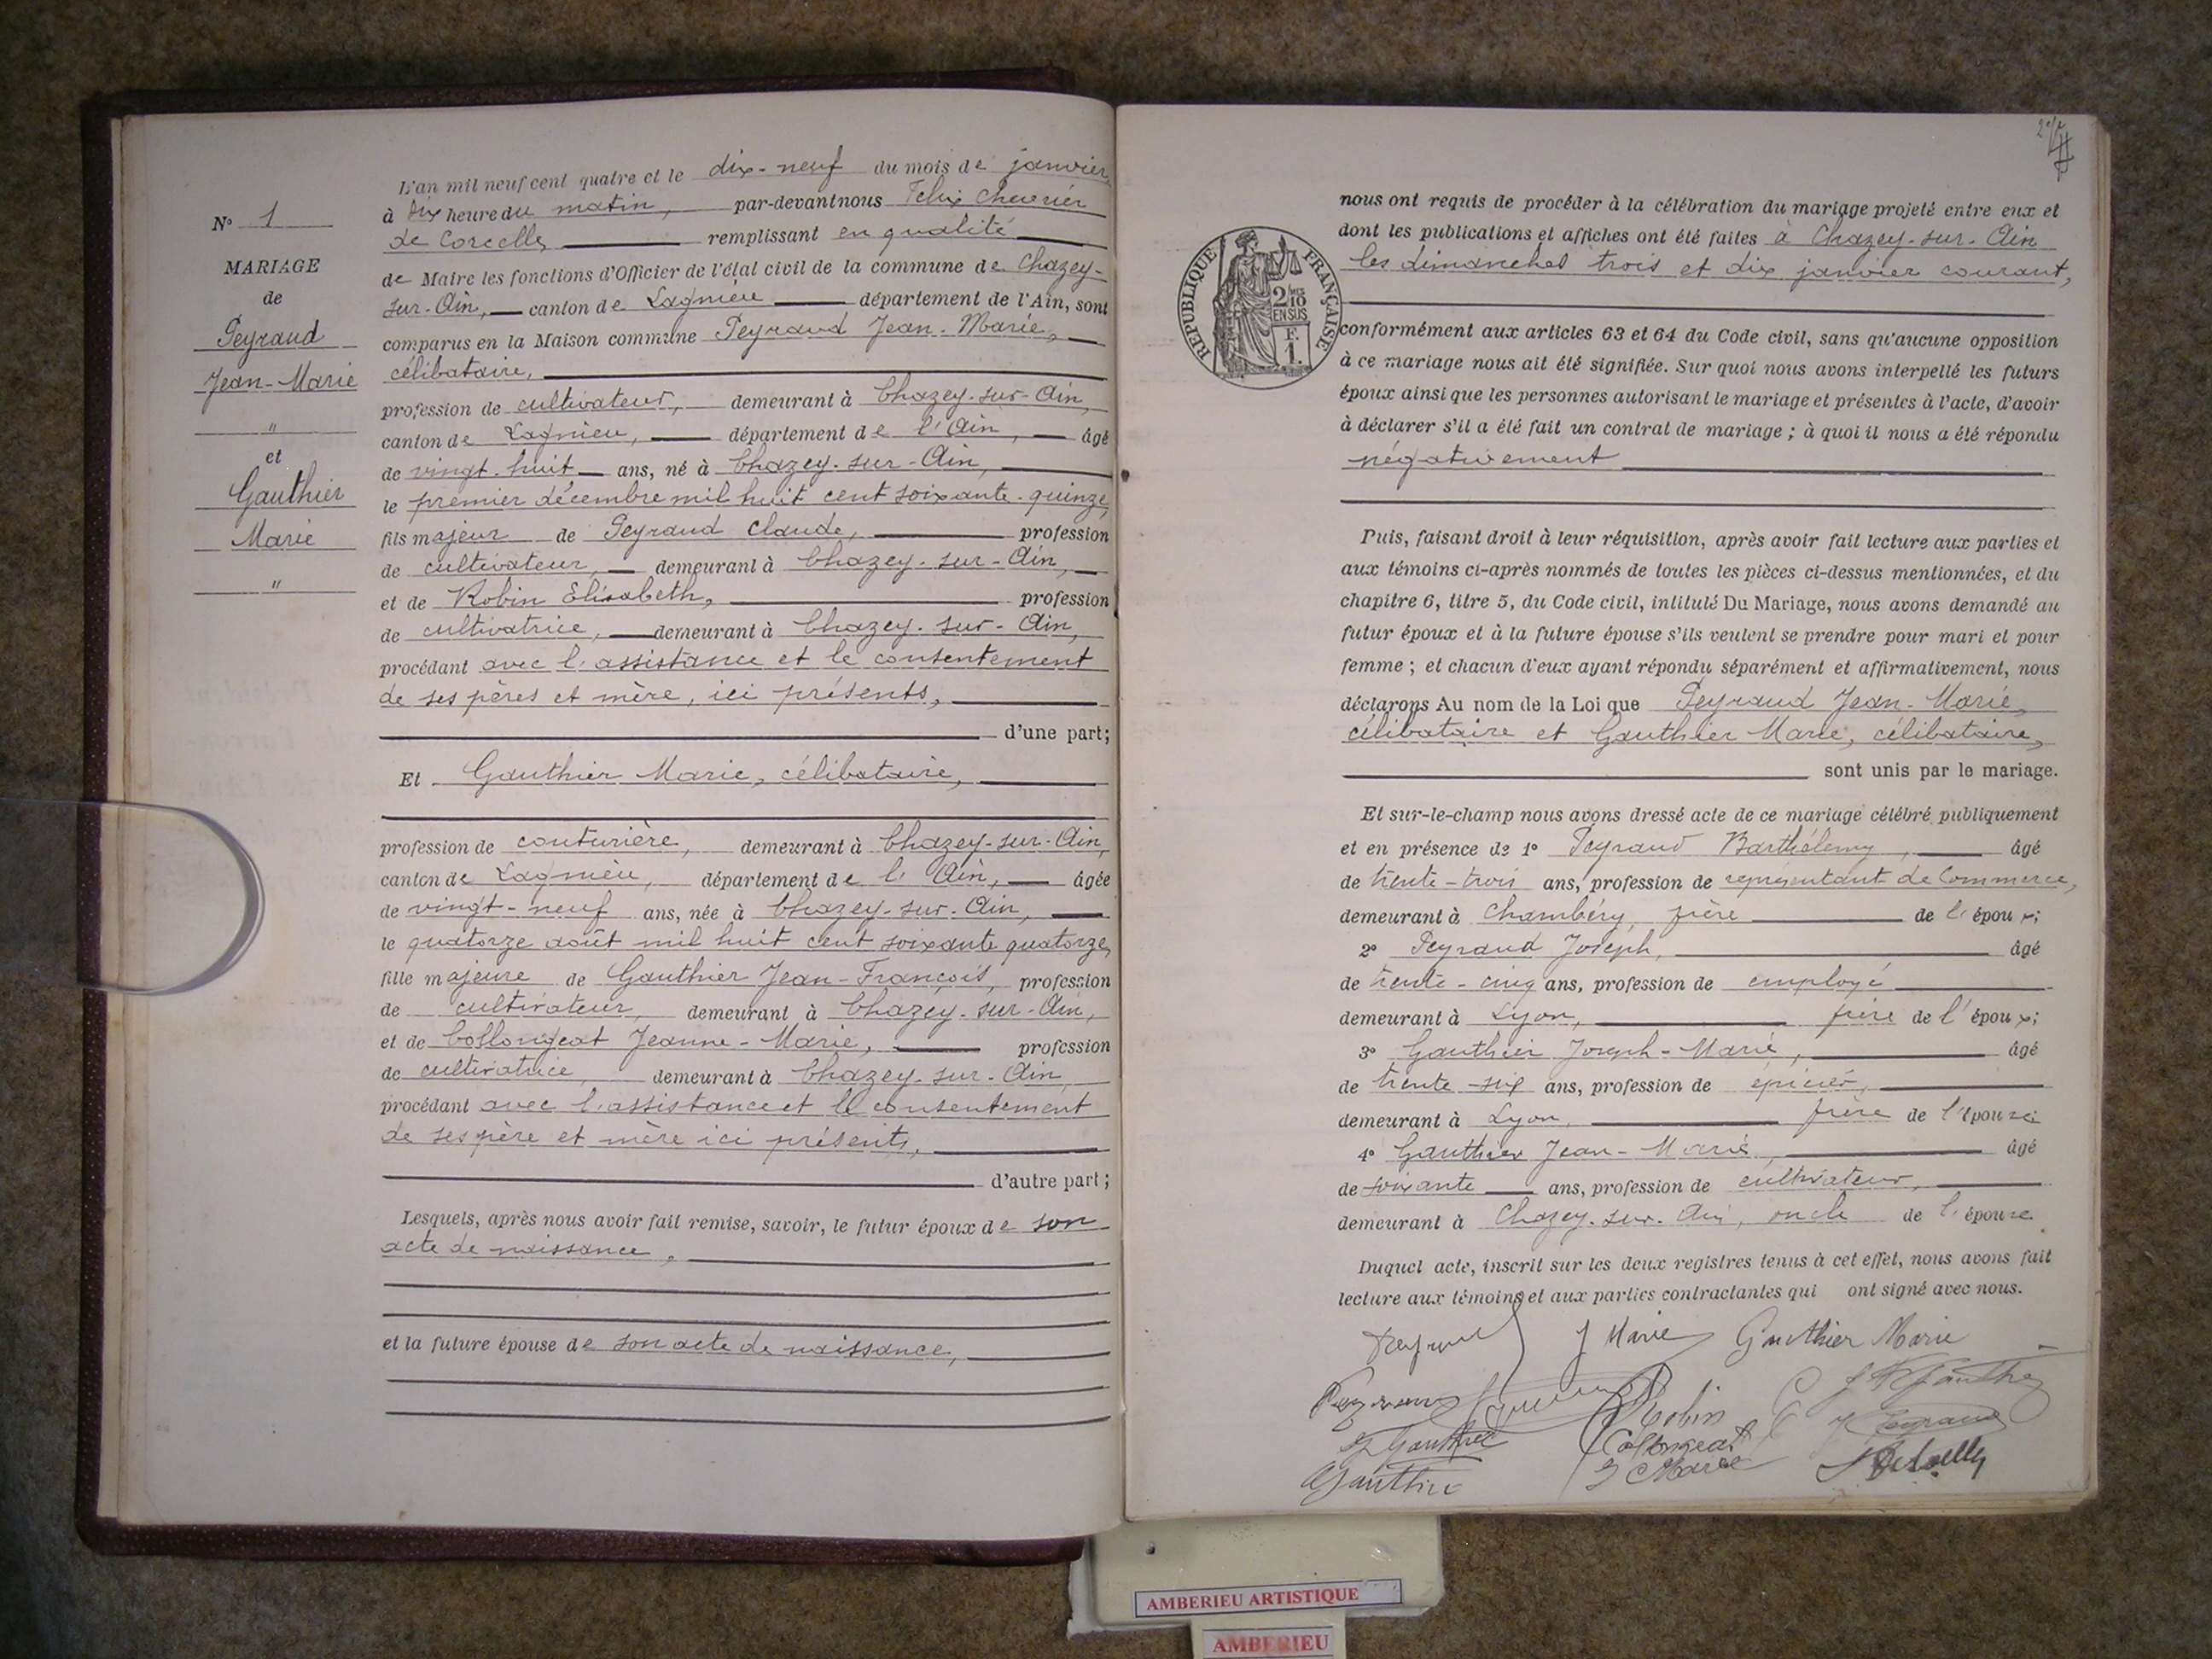 L'an mil neuf cent quatre et le dix-neuf du mois de janvier
à dix heure du matin, par-devant nous Felix Chevrier
de Corcelle remplissant en qualité
de Maire les fonctions d'Officier de l'état civil de la commune de Chazey-
sur-Ain, canton de Lagnieu département de l'Ain, sont
comparus en la Maison commune Peyraud Jean-Marie,
célibataire,
profession de cultivateur, demeurant à Chazey-sur-Ain,
canton de Lagnieu, département de l'Ain, âgé
de vingt-huit ans, né à Chazey-sur-Ain,
le premier décembre mil huit cent soixante-quinze,
fils majeur de Peyraud Claude, profession
de cultivateur, demeurant à Chazey-sur-Ain,
et de Robin Elisabeth, profession
de cultivatrice, demeurant à Chazey-sur-Ain,
procédant avec l'assistance et le consentement
de ses pères et mère, ici présents,
d'une part;
Et Gauthier Marie, célibataire,
profession de couturière, demeurant à Chazey-sur-Ain,
canton de Lagnieu, département de l'Ain, âgée
de vingt-neuf ans, née à Chazey-sur-Ain,
le quatorze août mil huit cent soixante quatorze,
fille majeure de Gauthier Jean-François, profession
de cultivateur, demeurant à Chazey-sur-Ain,
et de Collongeat Jeanne-Marie, profession
de cultivatrice, demeurant à Chazey-sur-Ain
procédant avec l'assistance et le consentement
de ses père et mère ici présents,
d'autre part;
Lesquels, après nous avoir fait remise, savoir, le futur époux de son
acte de naissance,
et la future épouse de son acte de naissance,
N° 1
MARIAGE
de
Peyraud
Jean-Marie
"
et
Gauthier
Marie
"
nous ont requis de procéder à la célébration du mariage projeté entre eux et
dont les publications et affiches ont été faites à Chazey-sur-Ain
les dimanches trois et dix janvier courant,
RÉPUBLIQUE FRANÇAISE
2/10
EN SUS
F.
1.
conformément aux articles 63 et 64 du Code civil, sans qu'aucune opposition
à ce mariage nous ait été signifiée. Sur quoi nous avons interpellé les futurs
époux ainsi que les personnes autorisant le mariage et présentes à l'acte, d'avoir
à déclarer s'il a été fait un contrat de mariage; à quoi il nous a été répondu
négativement
Puis, faisant droit à leur réquisition, après avoir fait lecture aux parties et
aux témoins ci-après nommés de toutes les pièces ci-dessus mentionnées, et du
chapitre 6, titre 5, du Code civil, intitulé Du Mariage, nous avons demandé au
futur époux et à la future épouse s'ils veulent se prendre pour mari et pour
femme; et chacun d'eux ayant répondu séparément et affirmativement, nous
déclarons Au nom de la Loi que Peyraud Jean-Marie,
célibataire et Gauthier Marie, célibataire,
sont unis par le mariage.
Et sur-le-champ nous avons dressé acte de ce mariage célébré publiquement
et en présence de 1° Peyraud Barthélemy, âgé
de trente-trois ans, profession de représentant de Commerce,
demeurant à Chambéry, frère de l'époux;
2° Peyraud Joseph, âgé
de trente-cinq ans, profession de employé
demeurant à Lyon, frère de l'époux;
3° Gauthier Joseph-Marie, âgé
de trente-six ans, profession de épicier,
demeurant à Lyon, frère de l'épouse;
4° Gauthier Jean-Marie, âgé
de soixante ans, profession de cultivateur,
demeurant à Chazey-sur-Ain, oncle de l'épouse
Duquel acte, inscrit sur les deux registres tenus à cet effet, nous avons fait
lecture aux témoins et aux parties contractantes qui ont signé avec nous.
Peyraud J Marie Gauthier Marie
Peyraud Robin Gauthier
Gauthier Collongeat Peyraud
Gauthier J Marie
AMBERIEU ARTISTIQUE
AMBERIEU